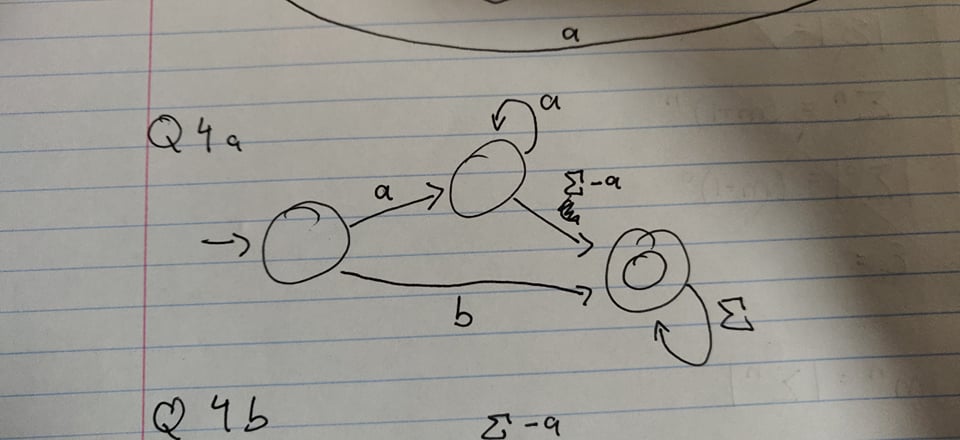 a
Q 4a
a
a
Σ-a
b
Σ
Q 4b
Σ-a